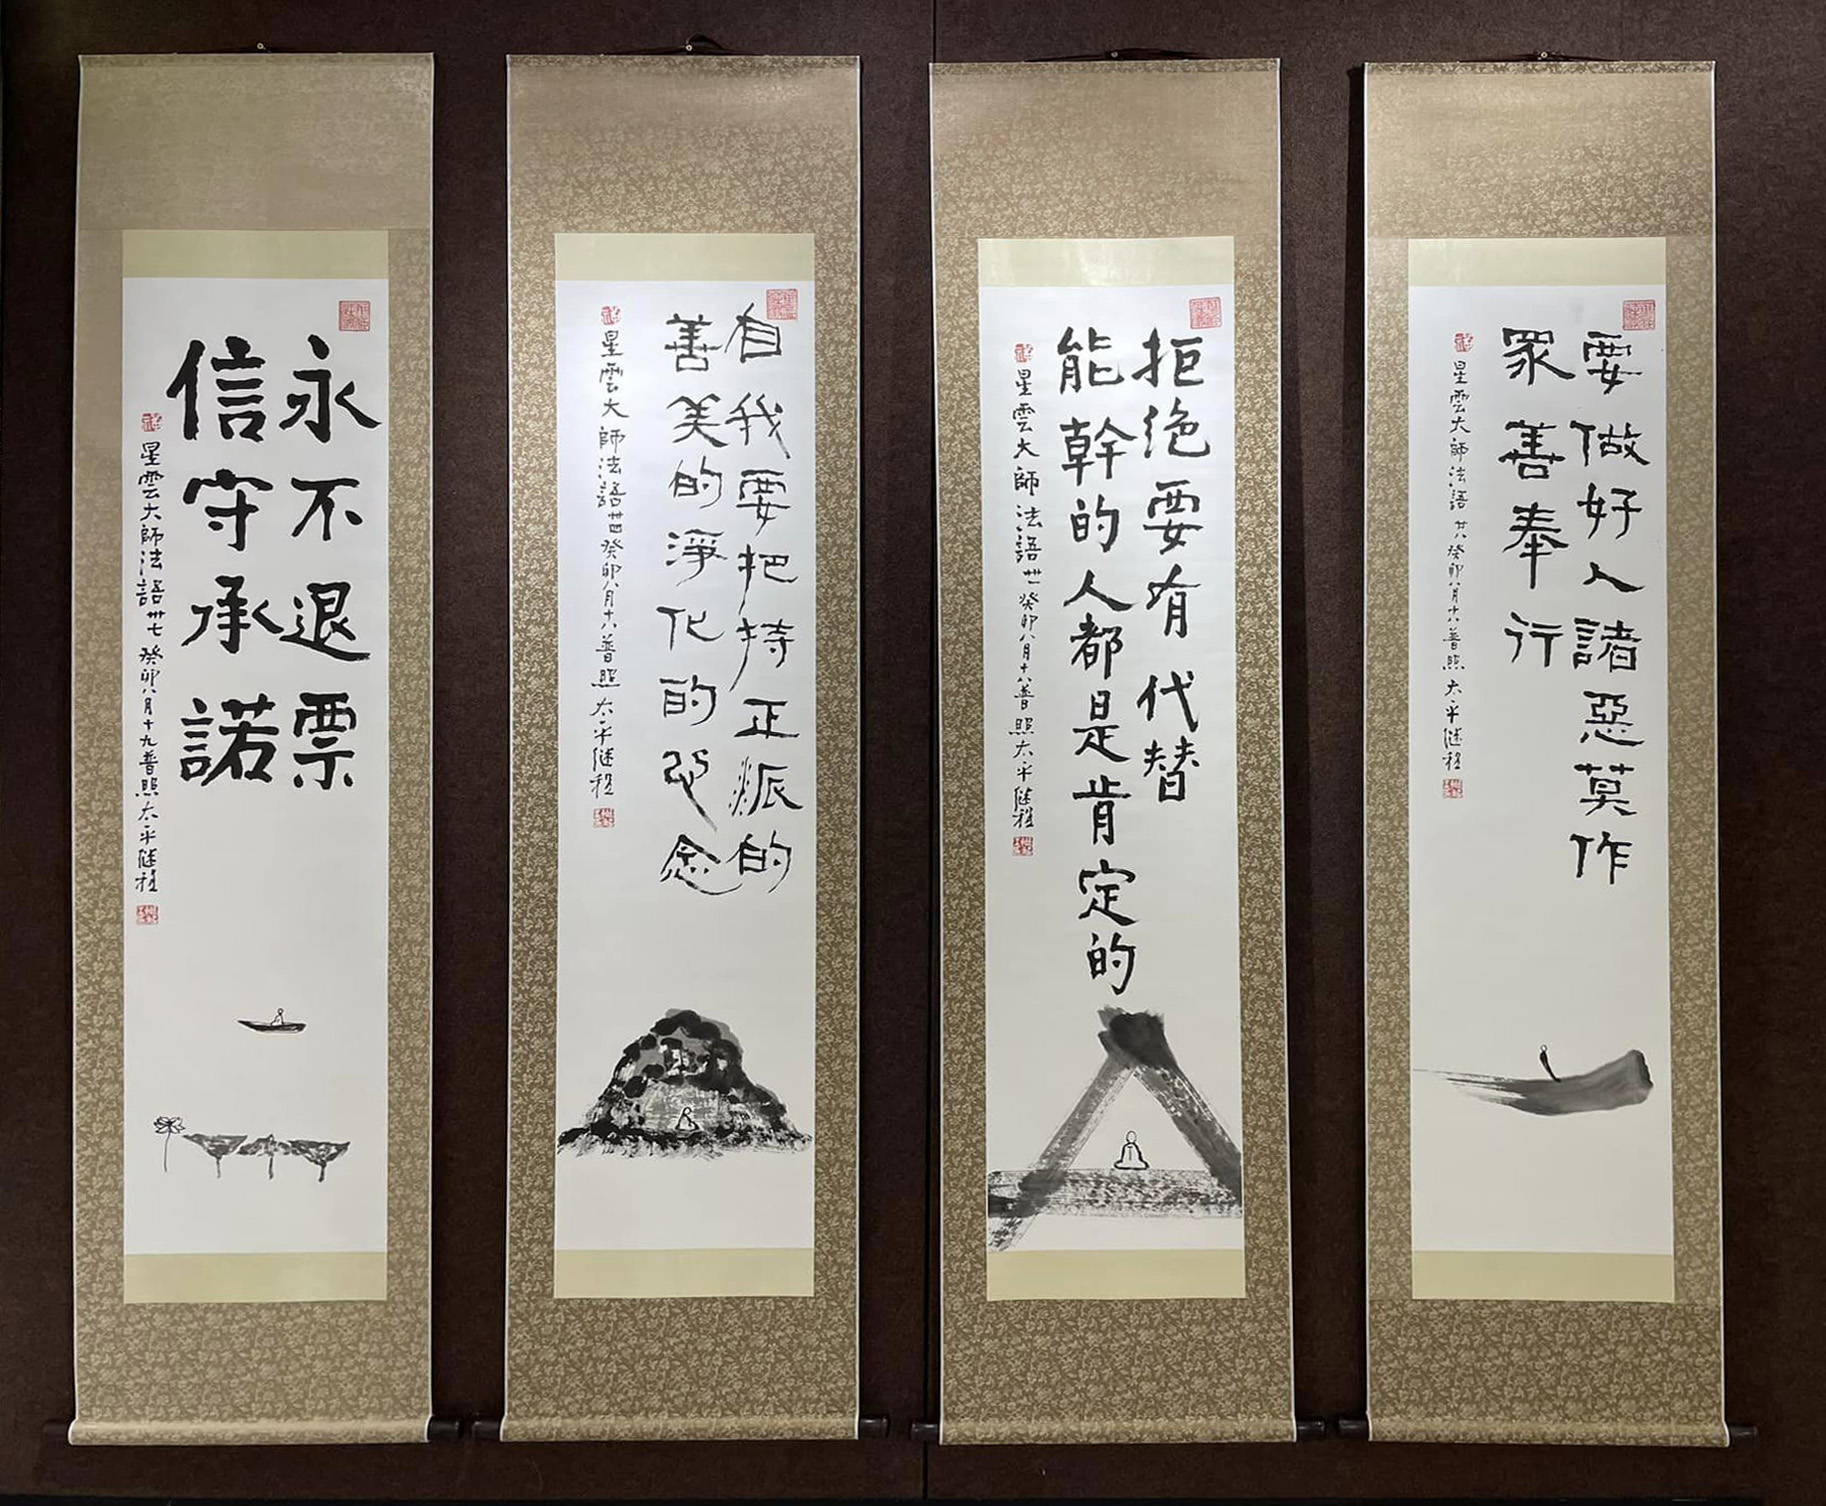 要做好人諸惡莫作
眾善奉行
星雲大師法語廿八癸卯八月十六普照太平繼程
拒绝要有代替
能幹的人都是肯定的
星雲大師法語卅一癸卯八月十六普照太平繼程
自我要把持正派的
善美的淨化的心念
星雲大師法語卅四癸卯八月十六普照太平繼程
永不退票
信守承諾
星雲大師法語卅七癸卯八月十九普照太平繼程